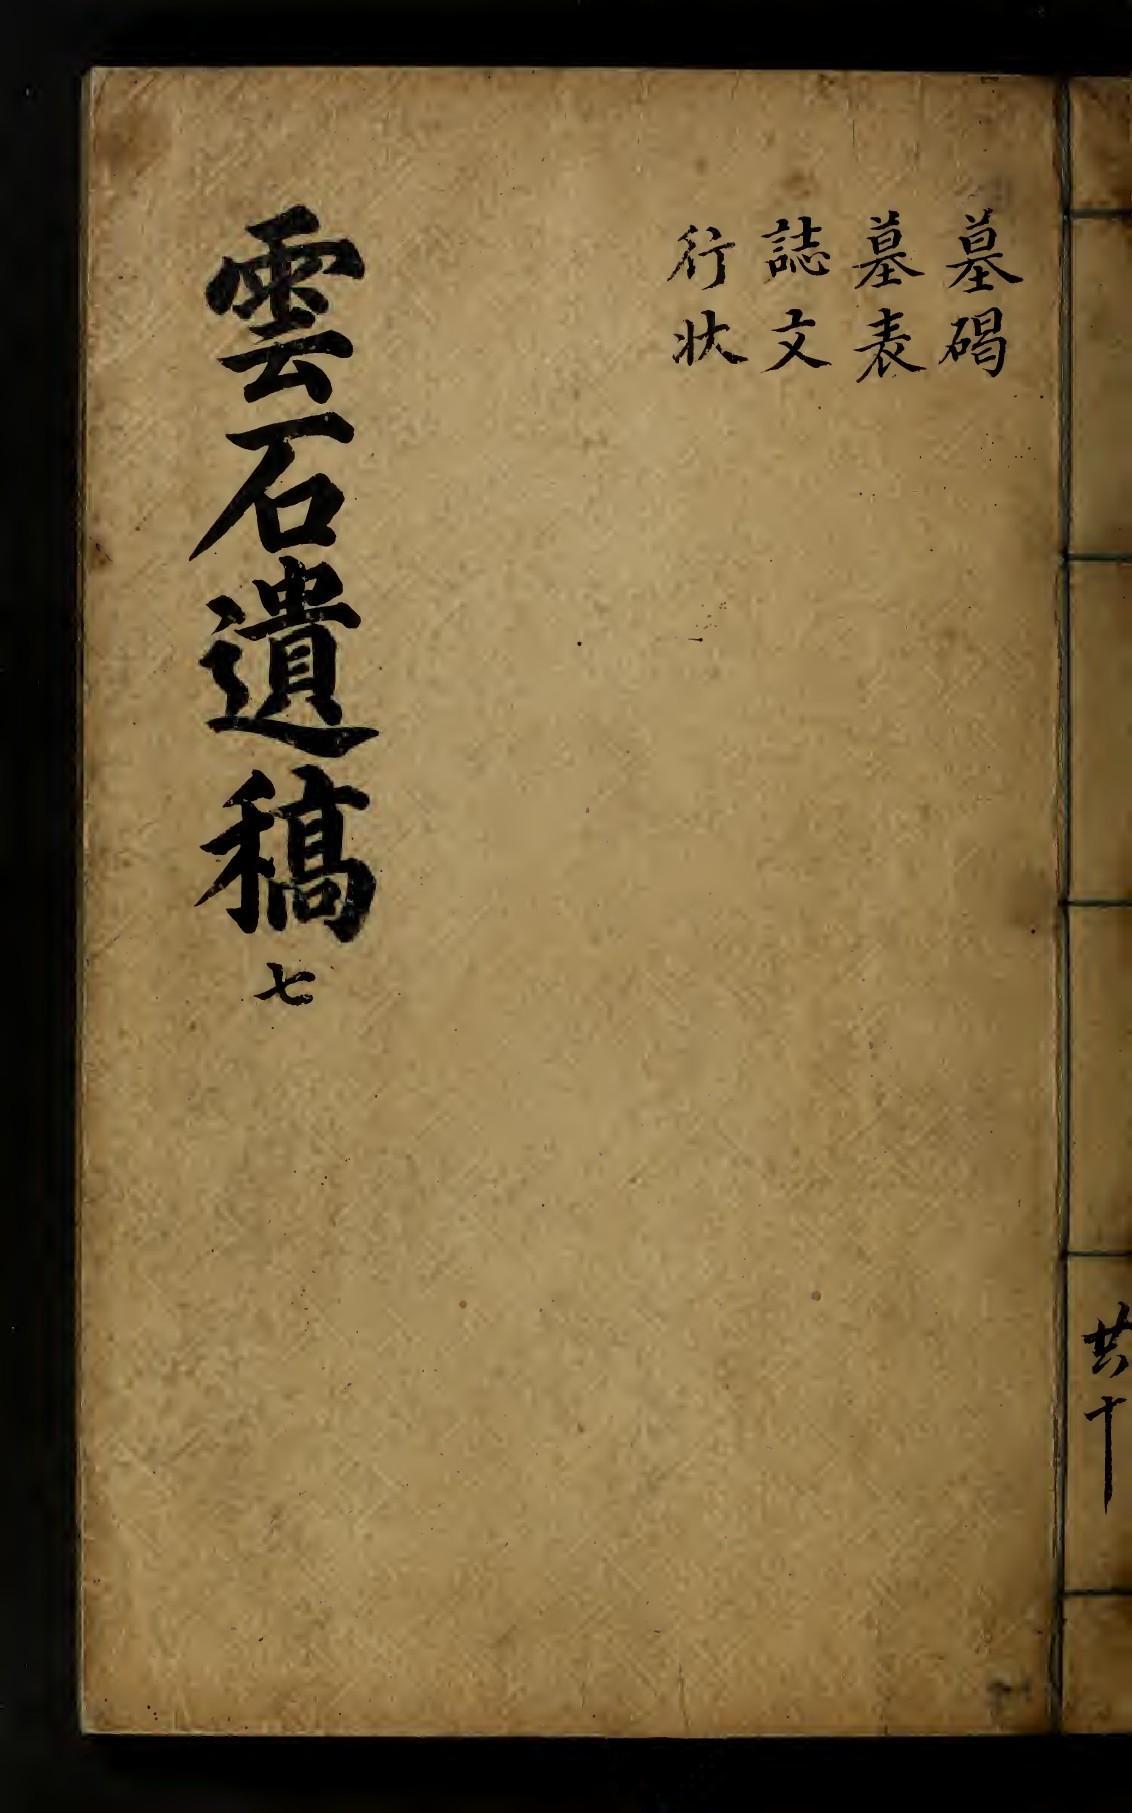 墓碣
墓表
誌文
行狀
雲石遺稿 七
共十